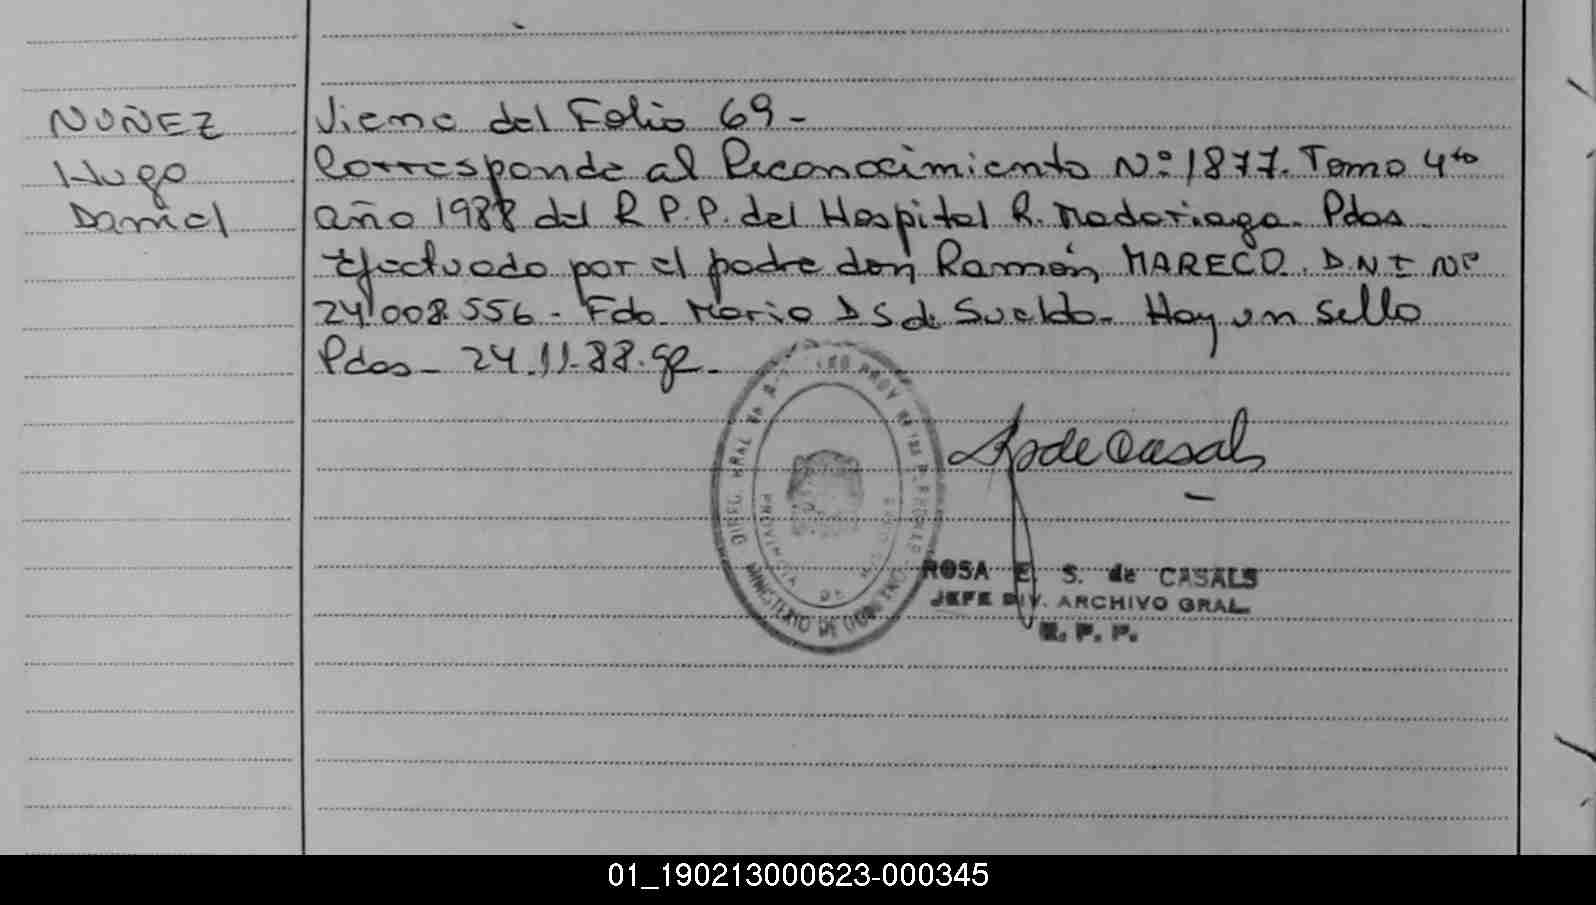 NUÑEZ
Hugo
Daniel
Viene del Folio 69 -
Corresponde al Reconocimiento Nº 1877. Tomo 4to
año 1988 del R.P.P. del Hospital R. Madariaga. Pdas
Efectuado por el padre don Ramón MARECO. D.N.I Nº
24.008.556 - Fdo. Mario D S de Sueldo - Hay un sello
Pdas - 24.11.88.
DIREC. GRAL
MINISTERIO DE GOBIERNO
PROVINCIA DE
de Casals
ROSA E. S. de CASALS
JEFE DIV. ARCHIVO GRAL.
R. P. P.
01_190213000623-000345